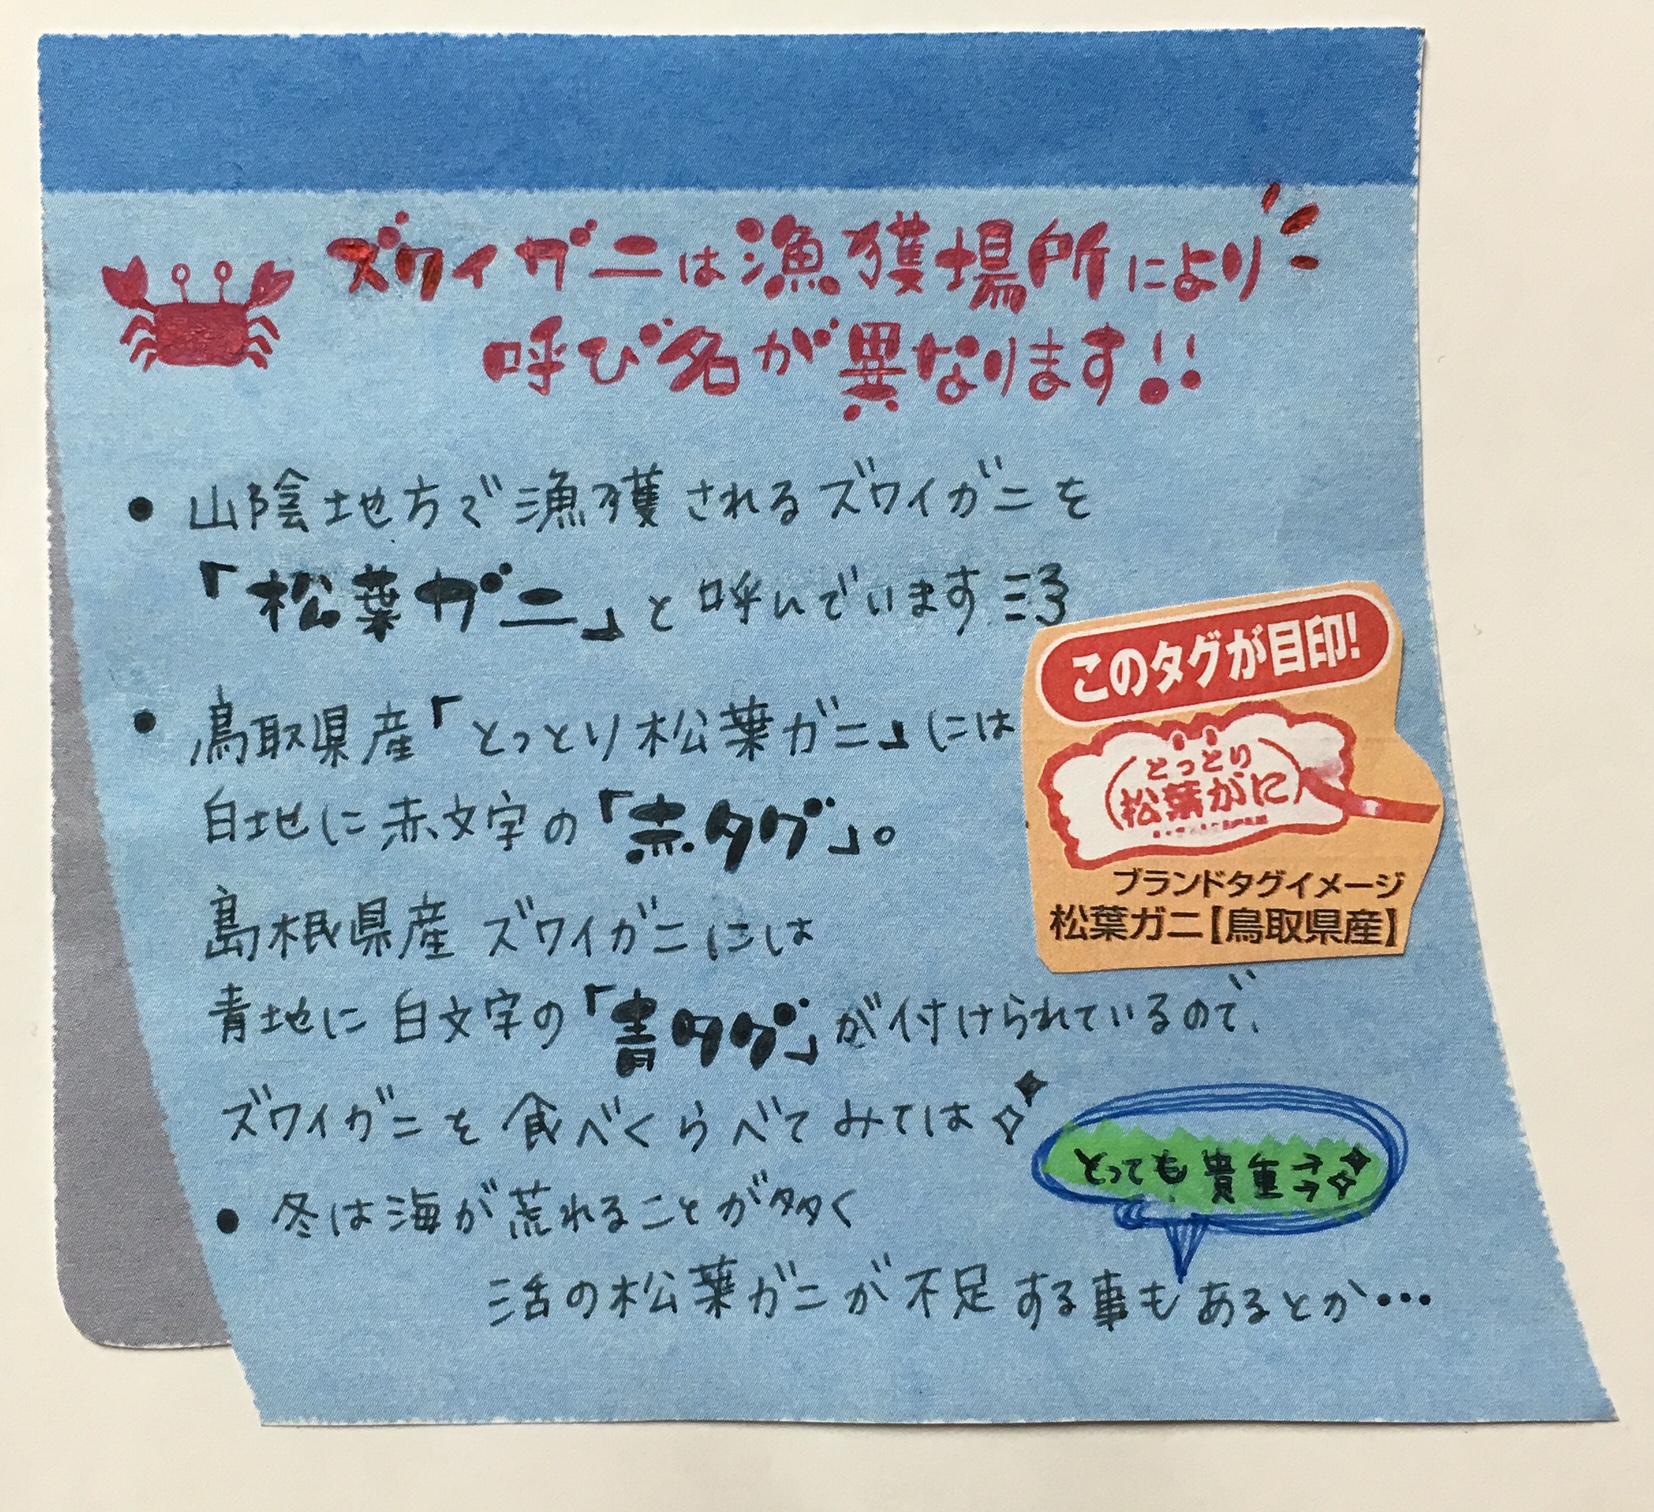 ズワイガニは漁獲場所により
呼び名が異なります!!
• 山陰地方で漁獲されるズワイガニを
「松葉ガニ」と呼んでいます
• 鳥取県産「とっとり松葉ガニ」には
白地に赤文字の「赤タグ」。
島根県産ズワイガニには
青地に白文字の「青タグ」が付けられているので、
ズワイガニを食べくらべてみては
このタグが目印!
とっとり
松葉がに
ブランドタグイメージ
松葉ガニ【鳥取県産】
とっても貴重
• 冬は海が荒れることが多く
活の松葉ガニが不足する事もあるとか…